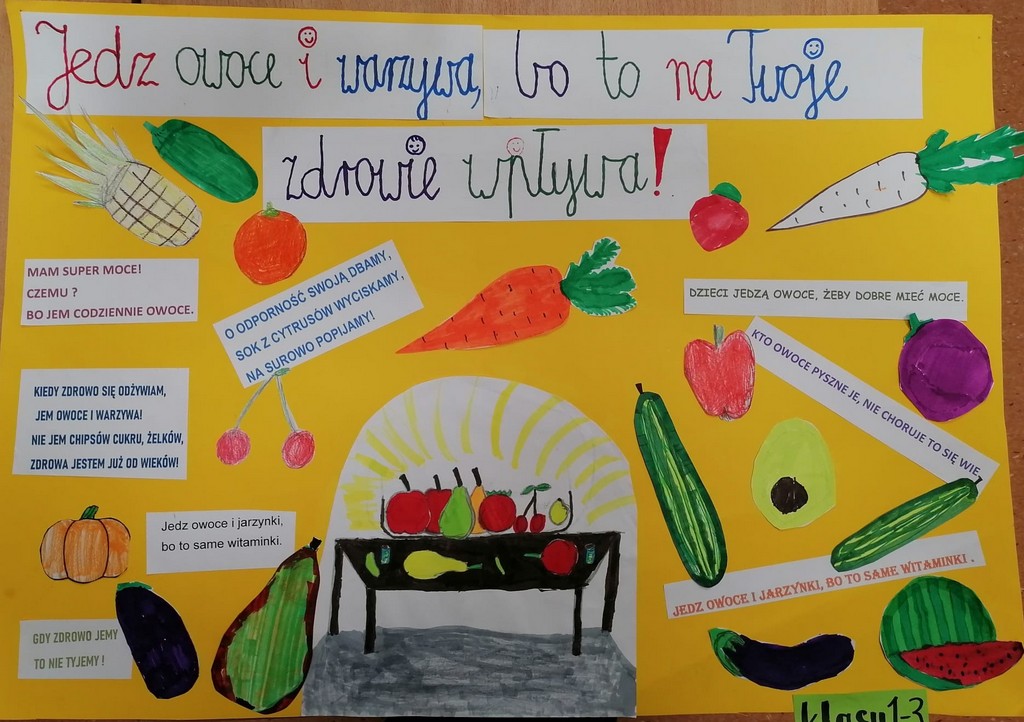 Jedz owoce i warzywa, bo to na Twoje
zdrowie wpływa!
MAM SUPER MOCE!
CZEMU ?
BO JEM CODZIENNIE OWOCE.
O ODPORNOŚĆ SWOJĄ DBAMY,
SOK Z CYTRUSÓW WYCISKAMY,
NA SUROWO POPIJAMY!
DZIECI JEDZĄ OWOCE, ŻEBY DOBRE MIEĆ MOCE.
KTO OWOCE PYSZNE JE, NIE CHORUJE TO SIĘ WIE.
KIEDY ZDROWO SIĘ ODŻYWIAM,
JEM OWOCE I WARZYWA!
NIE JEM CHIPSÓW CUKRU, ŻELKÓW,
ZDROWA JESTEM JUŻ OD WIEKÓW!
Jedz owoce i jarzynki,
bo to same witaminki.
JEDZ OWOCE I JARZYNKI, BO TO SAME WITAMINKI .
GDY ZDROWO JEMY
TO NIE TYJEMY !
klasy 1-3